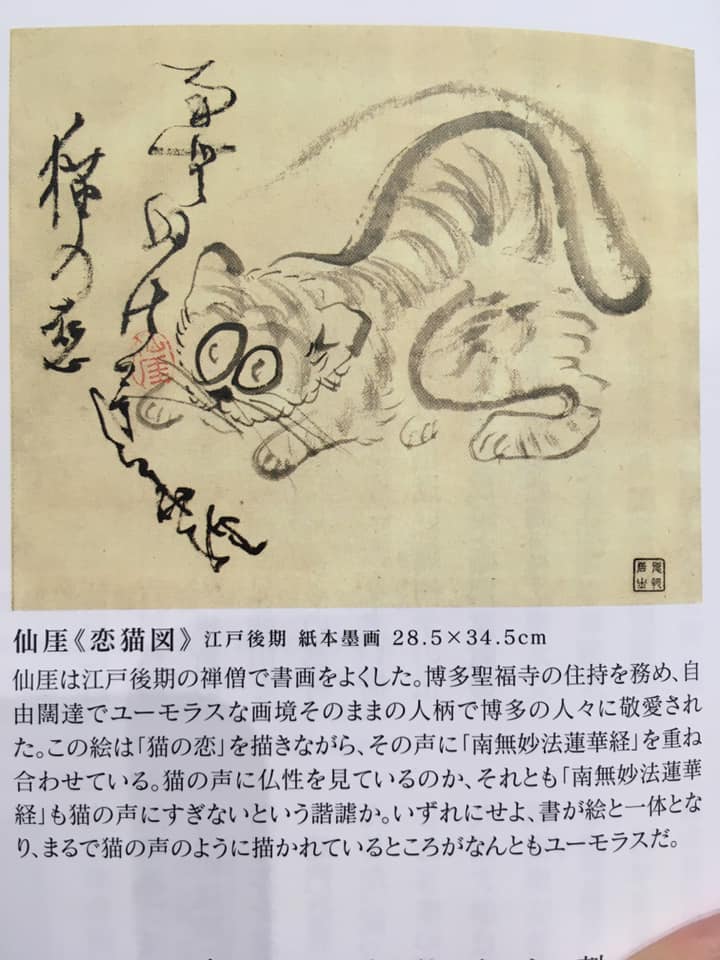 猫の恋
仙厓《恋猫図》 江戸後期 紙本墨画 28.5×34.5cm
仙厓は江戸後期の禅僧で書画をよくした。博多聖福寺の住持を務め、自
由闊達でユーモラスな画境そのままの人柄で博多の人々に敬愛され
た。この絵は「猫の恋」を描きながら、その声に「南無妙法蓮華経」を重ね
合わせている。猫の声に仏性を見ているのか、それとも「南無妙法蓮華
経」も猫の声にすぎないという諧謔か。いずれにせよ、書が絵と一体とな
り、まるで猫の声のように描かれているところがなんともユーモラスだ。